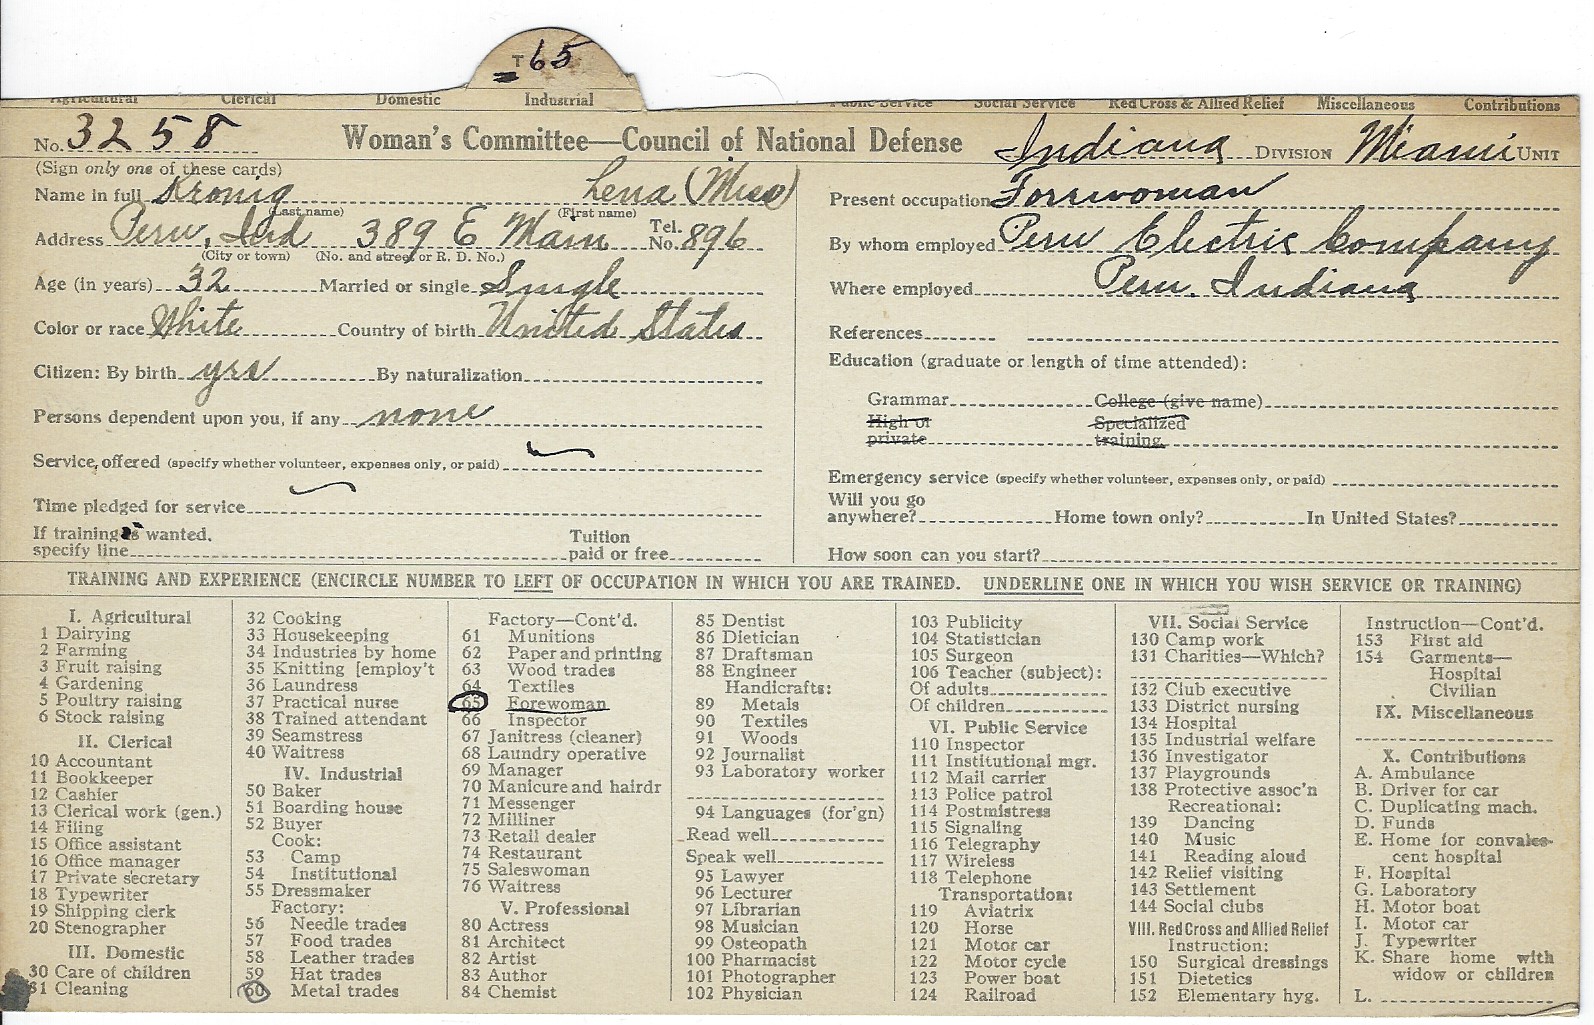 T 65
Agricultural Clerical Domestic Industrial Public Service Social Service Red Cross & Allied Relief Miscellaneous Contributions
No. 3258 Woman's Committee—Council of National Defense Indiana DIVISION Miami UNIT
(Sign only one of these cards)
Name in full Kronig Lena (Miss)
(Last name) (First name)
Address Peru, Ind 389 E Main Tel. No. 896
(City or town) (No. and street or R. D. No.)
Age (in years) 32 Married or single Single
Color or race White Country of birth United States
Citizen: By birth yes By naturalization
Persons dependent upon you, if any none
Service offered (specify whether volunteer, expenses only, or paid)
Time pledged for service
If training is wanted, specify line Tuition paid or free
Present occupation Forewoman
By whom employed Peru Electric Company
Where employed Peru, Indiana
References
Education (graduate or length of time attended):
Grammar College (give name)
High or private Specialized training
Emergency service (specify whether volunteer, expenses only, or paid)
Will you go anywhere? Home town only? In United States?
How soon can you start?
TRAINING AND EXPERIENCE (ENCIRCLE NUMBER TO LEFT OF OCCUPATION IN WHICH YOU ARE TRAINED. UNDERLINE ONE IN WHICH YOU WISH SERVICE OR TRAINING)
I. Agricultural
1 Dairying
2 Farming
3 Fruit raising
4 Gardening
5 Poultry raising
6 Stock raising
II. Clerical
10 Accountant
11 Bookkeeper
12 Cashier
13 Clerical work (gen.)
14 Filing
15 Office assistant
16 Office manager
17 Private secretary
18 Typewriter
19 Shipping clerk
20 Stenographer
III. Domestic
30 Care of children
31 Cleaning
32 Cooking
33 Housekeeping
34 Industries by home
35 Knitting [employ't
36 Laundress
37 Practical nurse
38 Trained attendant
39 Seamstress
40 Waitress
IV. Industrial
50 Baker
51 Boarding house
52 Buyer
Cook:
53 Camp
54 Institutional
55 Dressmaker
Factory:
56 Needle trades
57 Food trades
58 Leather trades
59 Hat trades
60 Metal trades
Factory—Cont'd.
61 Munitions
62 Paper and printing
63 Wood trades
64 Textiles
65 Forewoman
66 Inspector
67 Janitress (cleaner)
68 Laundry operative
69 Manager
70 Manicure and hairdr
71 Messenger
72 Milliner
73 Retail dealer
74 Restaurant
75 Saleswoman
76 Waitress
V. Professional
80 Actress
81 Architect
82 Artist
83 Author
84 Chemist
85 Dentist
86 Dietician
87 Draftsman
88 Engineer
Handicrafts:
89 Metals
90 Textiles
91 Woods
92 Journalist
93 Laboratory worker
94 Languages (for'gn)
Read well
Speak well
95 Lawyer
96 Lecturer
97 Librarian
98 Musician
99 Osteopath
100 Pharmacist
101 Photographer
102 Physician
103 Publicity
104 Statistician
105 Surgeon
106 Teacher (subject):
Of adults
Of children
VI. Public Service
110 Inspector
111 Institutional mgr.
112 Mail carrier
113 Police patrol
114 Postmistress
115 Signaling
116 Telegraphy
117 Wireless
118 Telephone
Transportation:
119 Aviatrix
120 Horse
121 Motor car
122 Motor cycle
123 Power boat
124 Railroad
VII. Social Service
130 Camp work
131 Charities—Which?
132 Club executive
133 District nursing
134 Hospital
135 Industrial welfare
136 Investigator
137 Playgrounds
138 Protective assoc'n
Recreational:
139 Dancing
140 Music
141 Reading aloud
142 Relief visiting
143 Settlement
144 Social clubs
VIII. Red Cross and Allied Relief
Instruction:
150 Surgical dressings
151 Dietetics
152 Elementary hyg.
Instruction—Cont'd.
153 First aid
154 Garments—
Hospital
Civilian
IX. Miscellaneous
X. Contributions
A. Ambulance
B. Driver for car
C. Duplicating mach.
D. Funds
E. Home for convales-
cent hospital
F. Hospital
G. Laboratory
H. Motor boat
I. Motor car
J. Typewriter
K. Share home with
widow or children
L.